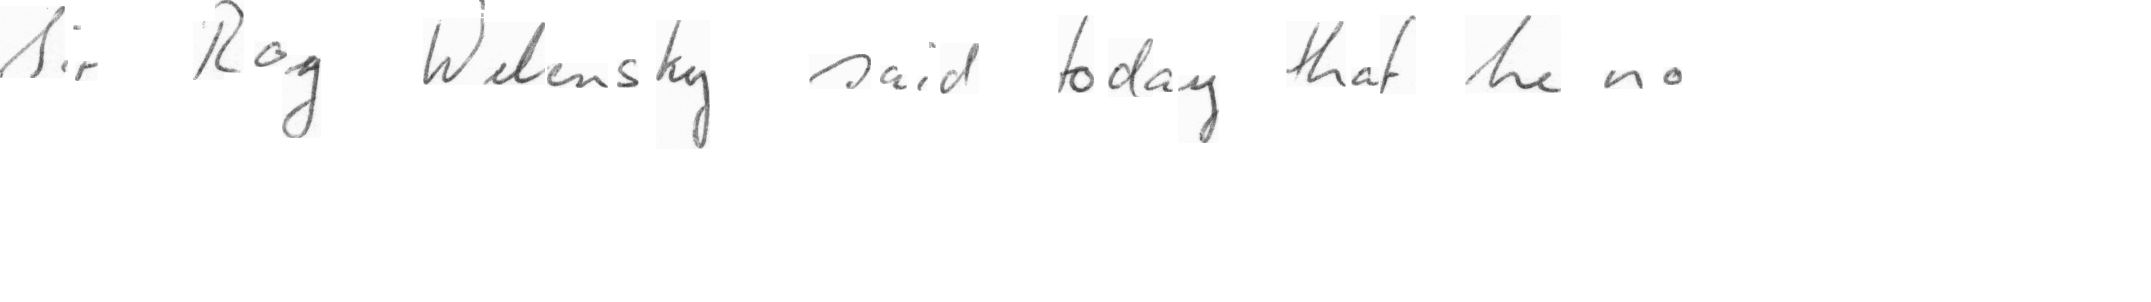 Sir Roy Welensky said today that he no